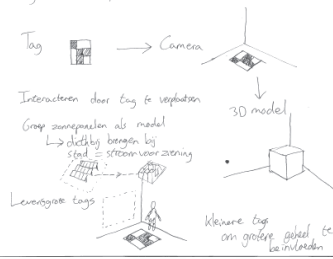 Tag
Camera
Interacteren door tag te verplaatsen
3D model
Groep zonnepanelen als model
dichtbij brengen bij
stad = stroomvoorziening
Levensgrote tags
Kleinere tags
om grotere geheel te
beïnvloeden